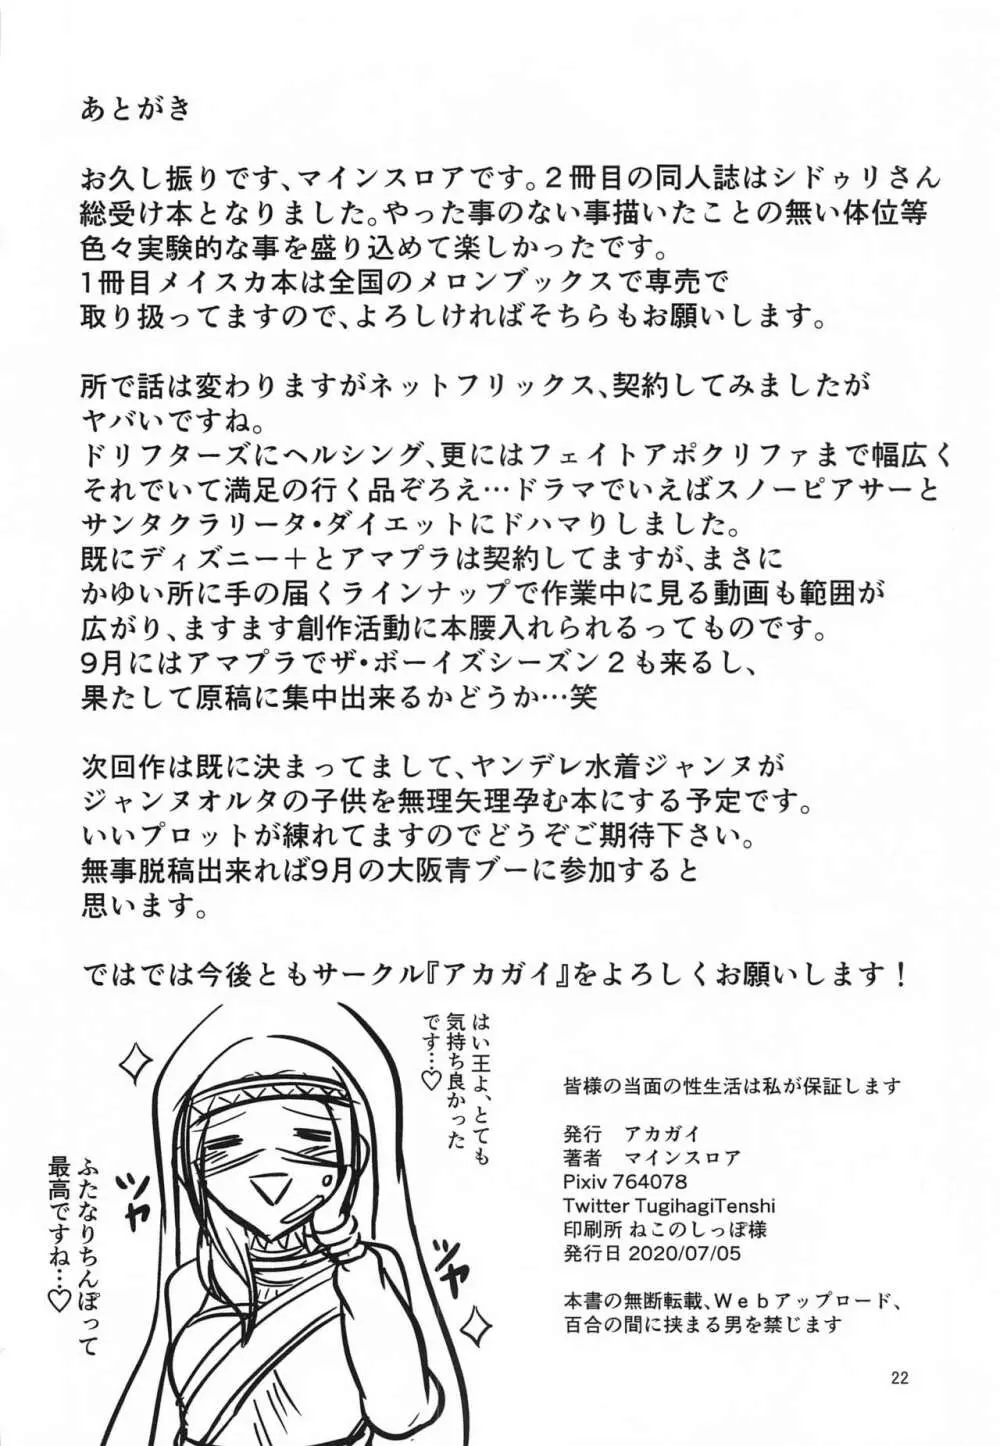 あとがき
お久し振りです、マインスロアです。２冊目の同人誌はシドゥリさん
総受け本となりました。やった事のない事描いたことの無い体位等
色々実験的な事を盛り込めて楽しかったです。
1冊目メイスカ本は全国のメロンブックスで専売で
取り扱ってますので、よろしければそちらもお願いします。
所で話は変わりますがネットフリックス、契約してみましたが
ヤバいですね。
ドリフターズにヘルシング、更にはフェイトアポクリファまで幅広く
それでいて満足の行く品ぞろえ…ドラマでいえばスノーピアサーと
サンタクラリータ・ダイエットにドハマりしました。
既にディズニー＋とアマプラは契約してますが、まさに
かゆい所に手の届くラインナップで作業中に見る動画も範囲が
広がり、ますます創作活動に本腰入れられるってものです。
9月にはアマプラでザ・ボーイズシーズン２も来るし、
果たして原稿に集中出来るかどうか…笑
次回作は既に決まってまして、ヤンデレ水着ジャンヌが
ジャンヌオルタの子供を無理矢理孕む本にする予定です。
いいプロットが練れてますのでどうぞご期待下さい。
無事脱稿出来れば9月の大阪青ブーに参加すると
思います。
ではでは今後ともサークル『アカガイ』をよろしくお願いします！
はい王よ、とても
気持ち良かった
です…♡
ツヤ
ツヤ
ふたなりちんぽって
最高ですね…♡
皆様の当面の性生活は私が保証します
発行　アカガイ
著者　マインスロア
Pixiv 764078
Twitter TugihagiTenshi
印刷所 ねこのしっぽ様
発行日 2020/07/05
本書の無断転載、Ｗｅｂアップロード、
百合の間に挟まる男を禁じます
22